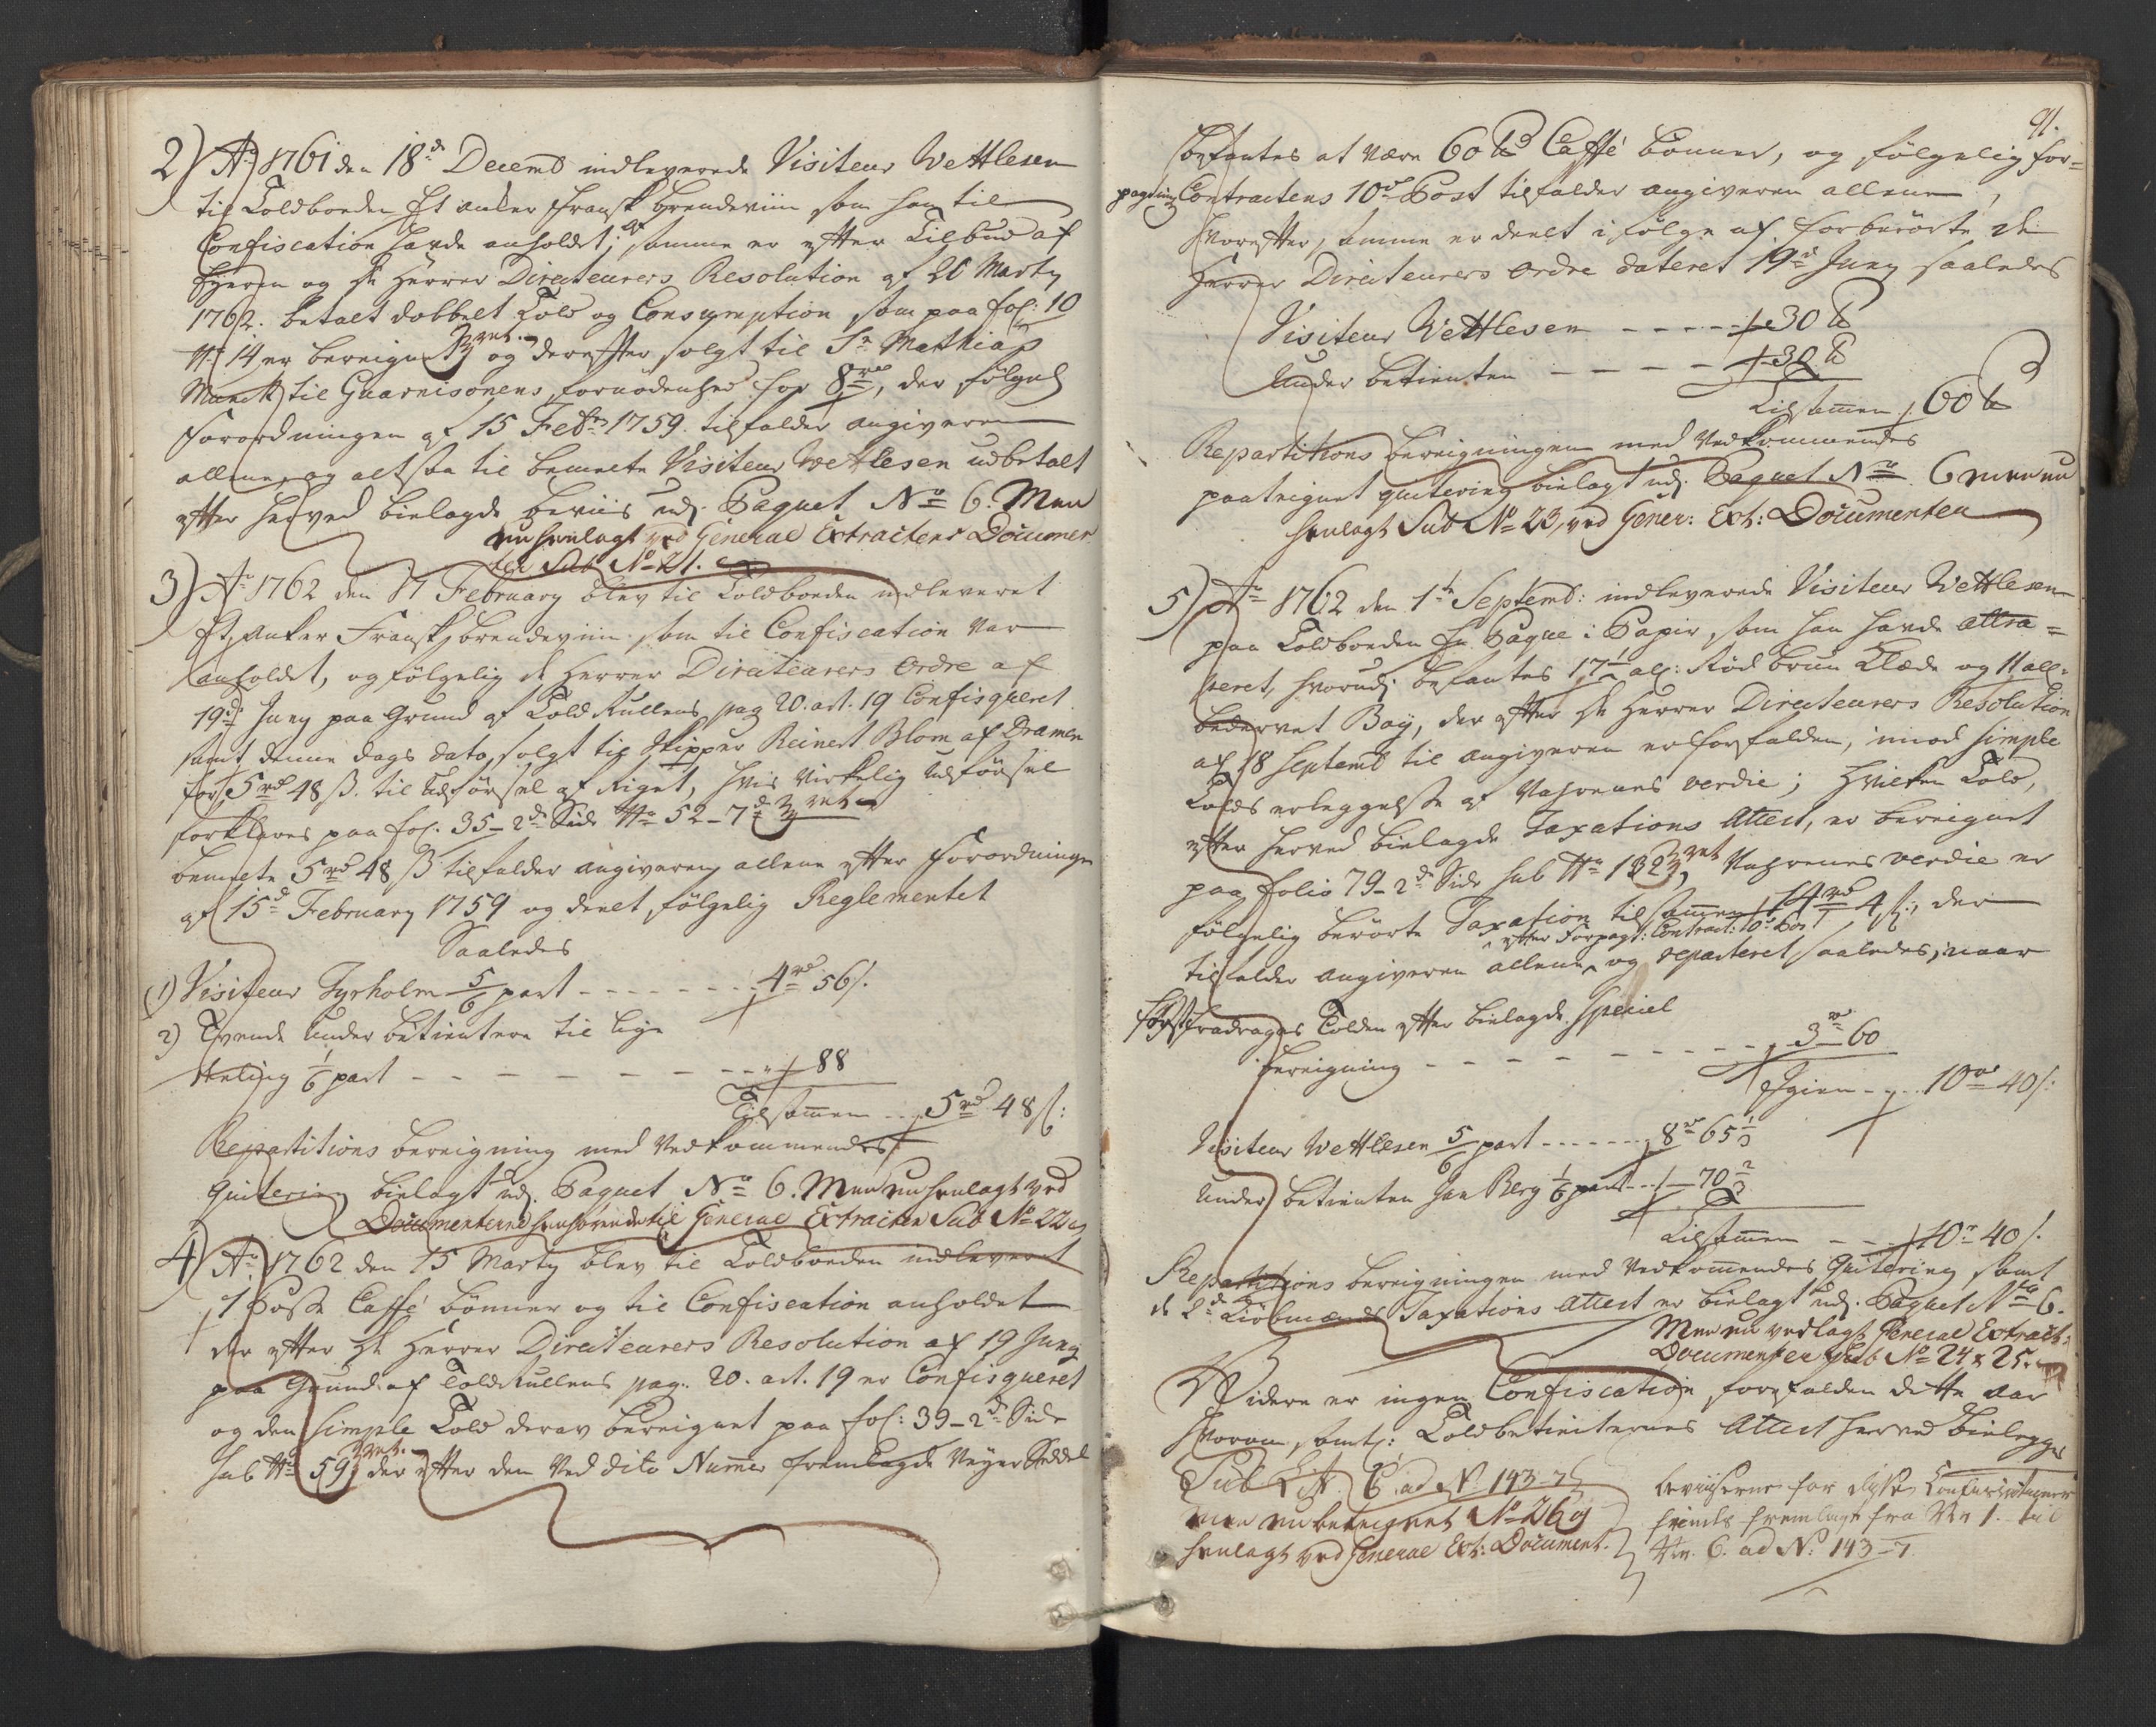 2) Aō 1761 den 18de Decemb indleverede Visiteur Wettlesen
til Toldboden Et anker Fransk brendeviin som han til
Confiscation havde anholdt; samme er efter Tilbud af
Eyeren og de Herrer Directeurers Resolution af 20 Marty
1762. betalt dobbelt Told og Consumption, som paa fol: 10
No 14 er bereignet, og derefter solgt til Sr Mathias
Munck til Guarnisonens fornødenhed for 8 rd, der følgel
Forordningen af 15 Febr 1759 tilfalder angiveren
allene, og altsaa til bemelte Visiteur Wettlesen udbetalt
efter hosved bielagde beviis udj Paquet No 6. Men
nu henlagt ved General Extractens Documen
ter Sub No 21.
3) Ao 1762 den 17 February blev til Toldboden indleveret
Et, Anker Fransk brendeviin som til Confiscation var
anholdet, og følgelig de Herrer Directeurers Ordre af
19de Juny paa Grund af Told Rullens pag 20. art. 19 Confisqueret
samt, denne dags dato, solgt til Skipper Reinert Blom af Dramen
for 5 rd 48 ß. til Udførsel af Riget, hvis virkelig Udførsel
forklares paa fol. 35 - 2de Side No 52 - 7de
bemelte 5 rd 48 ß tilfalder angiveren allene efter Forordningen
af 15de February 1759 og deelt følgelig Reglementet
Saaledes
1) Visiteur Tyrholm 5/6 part - - - - - 4 rd 56 ß.
2) Tvende Under betientere til lige
deeling 1/6 part - - - - - - - - " 88
Tilsammen - - 5 rd 48 ß:
Repartitions bereigning med Vedkommendes
Quitering bielagt udj. Paquet No 6. Men nu henlagt ved
Documenterne henhørende til General Extracten Sub No 22
4) Ao 1762 den 15 Marty blev til Toldboden indlevert
1 Posse Caffé bønner og til Confiscation anholdet
der efter de Herrer Directeurers Resolution af 19 Juny
paa Grund af Told Rullens pag. 20. art. 19 er Confisqueret
og den simple Told derav bereignet paa fol: 39 - 2de Side
sub No 59, der efter den Ved dito Numer fremlagde Veyer Seddel
91.
befantes at være 60 ℔ Caffé bønner, og følgelig for=
pagtnings Contractens 10de Post tilfalder angiveren allene,
hvorefter, samme er deelt i følge af forberørte de
Herrer Directeurers Ordre dateret 19de Juny saaledes
Visiteur Wettlesen - - - - - 30 ℔
Under betienten - - - - - 30 ℔
Tilsammen 60 ℔
Repartitions bereigningen med Vedkommendes
paategnet quitering bielagt udj Paquet No 6 men nu
henlagt Sub No 23, ved Gener: Ext: Documenten
5) Ao 1762 den 1te Septemb: indleverede Visiteur Wettlesen
paa Toldboden En Paque i Papir, som han havde attra=
peret, hvorudj befantes 17 1/2 al: Rød bruun Klæde og 11 al:
bedervet Boy, der efter de Herrer Directeurers Resolution
af 18 Septemb til angiveren er forfalden, imod simple
Tolds erleggelse af Vahrenes verdie; hvilken Told,
efter herved bielagde Taxations Attest, er bereignet
paa folio 79 - 2de Side sub No 132, Vahrenes verdie er
følgelig berørte Taxation tilsammen 14 rd 4 ß:, der
efter Forpagt: Contract: 10de Post
tilfalder angiveren allene, og reparteret saaledes, naar
først fradrages Tolden efter bielagde Speciel
bereigning - - - - - - - - - 3 rd 60
Igien - - 10 rd 40 ß:
Visiteur Wettlesen 5/6 part - - - - 8 rd 65 1/3
Under betienten Jan Berg 1/6 part - - 1 - 70 2/3
Tilsammen - - - 10 rd 40 ß.
Repartitions bereigningen med Vedkommendes Quitering samt
de 2de Kiøbmænds Taxations Attest er bielagt udj. Paquet No 6.
Men nu vedlagt General Extract:
Documenter Sub No 24 & 25.
Widere er ingen Confiscation forefalden dette aar
hvorom, samtl: Toldbetienternes Attest herved bielegges
Sub Litt. C. ad No 143-7
men nu betegnet No 26 og
henlagt ved General Ext: Document.
beviiserne for disse Confiscationer
findes fremlagt fra No 1. til
No. 6. ad No: 143-7